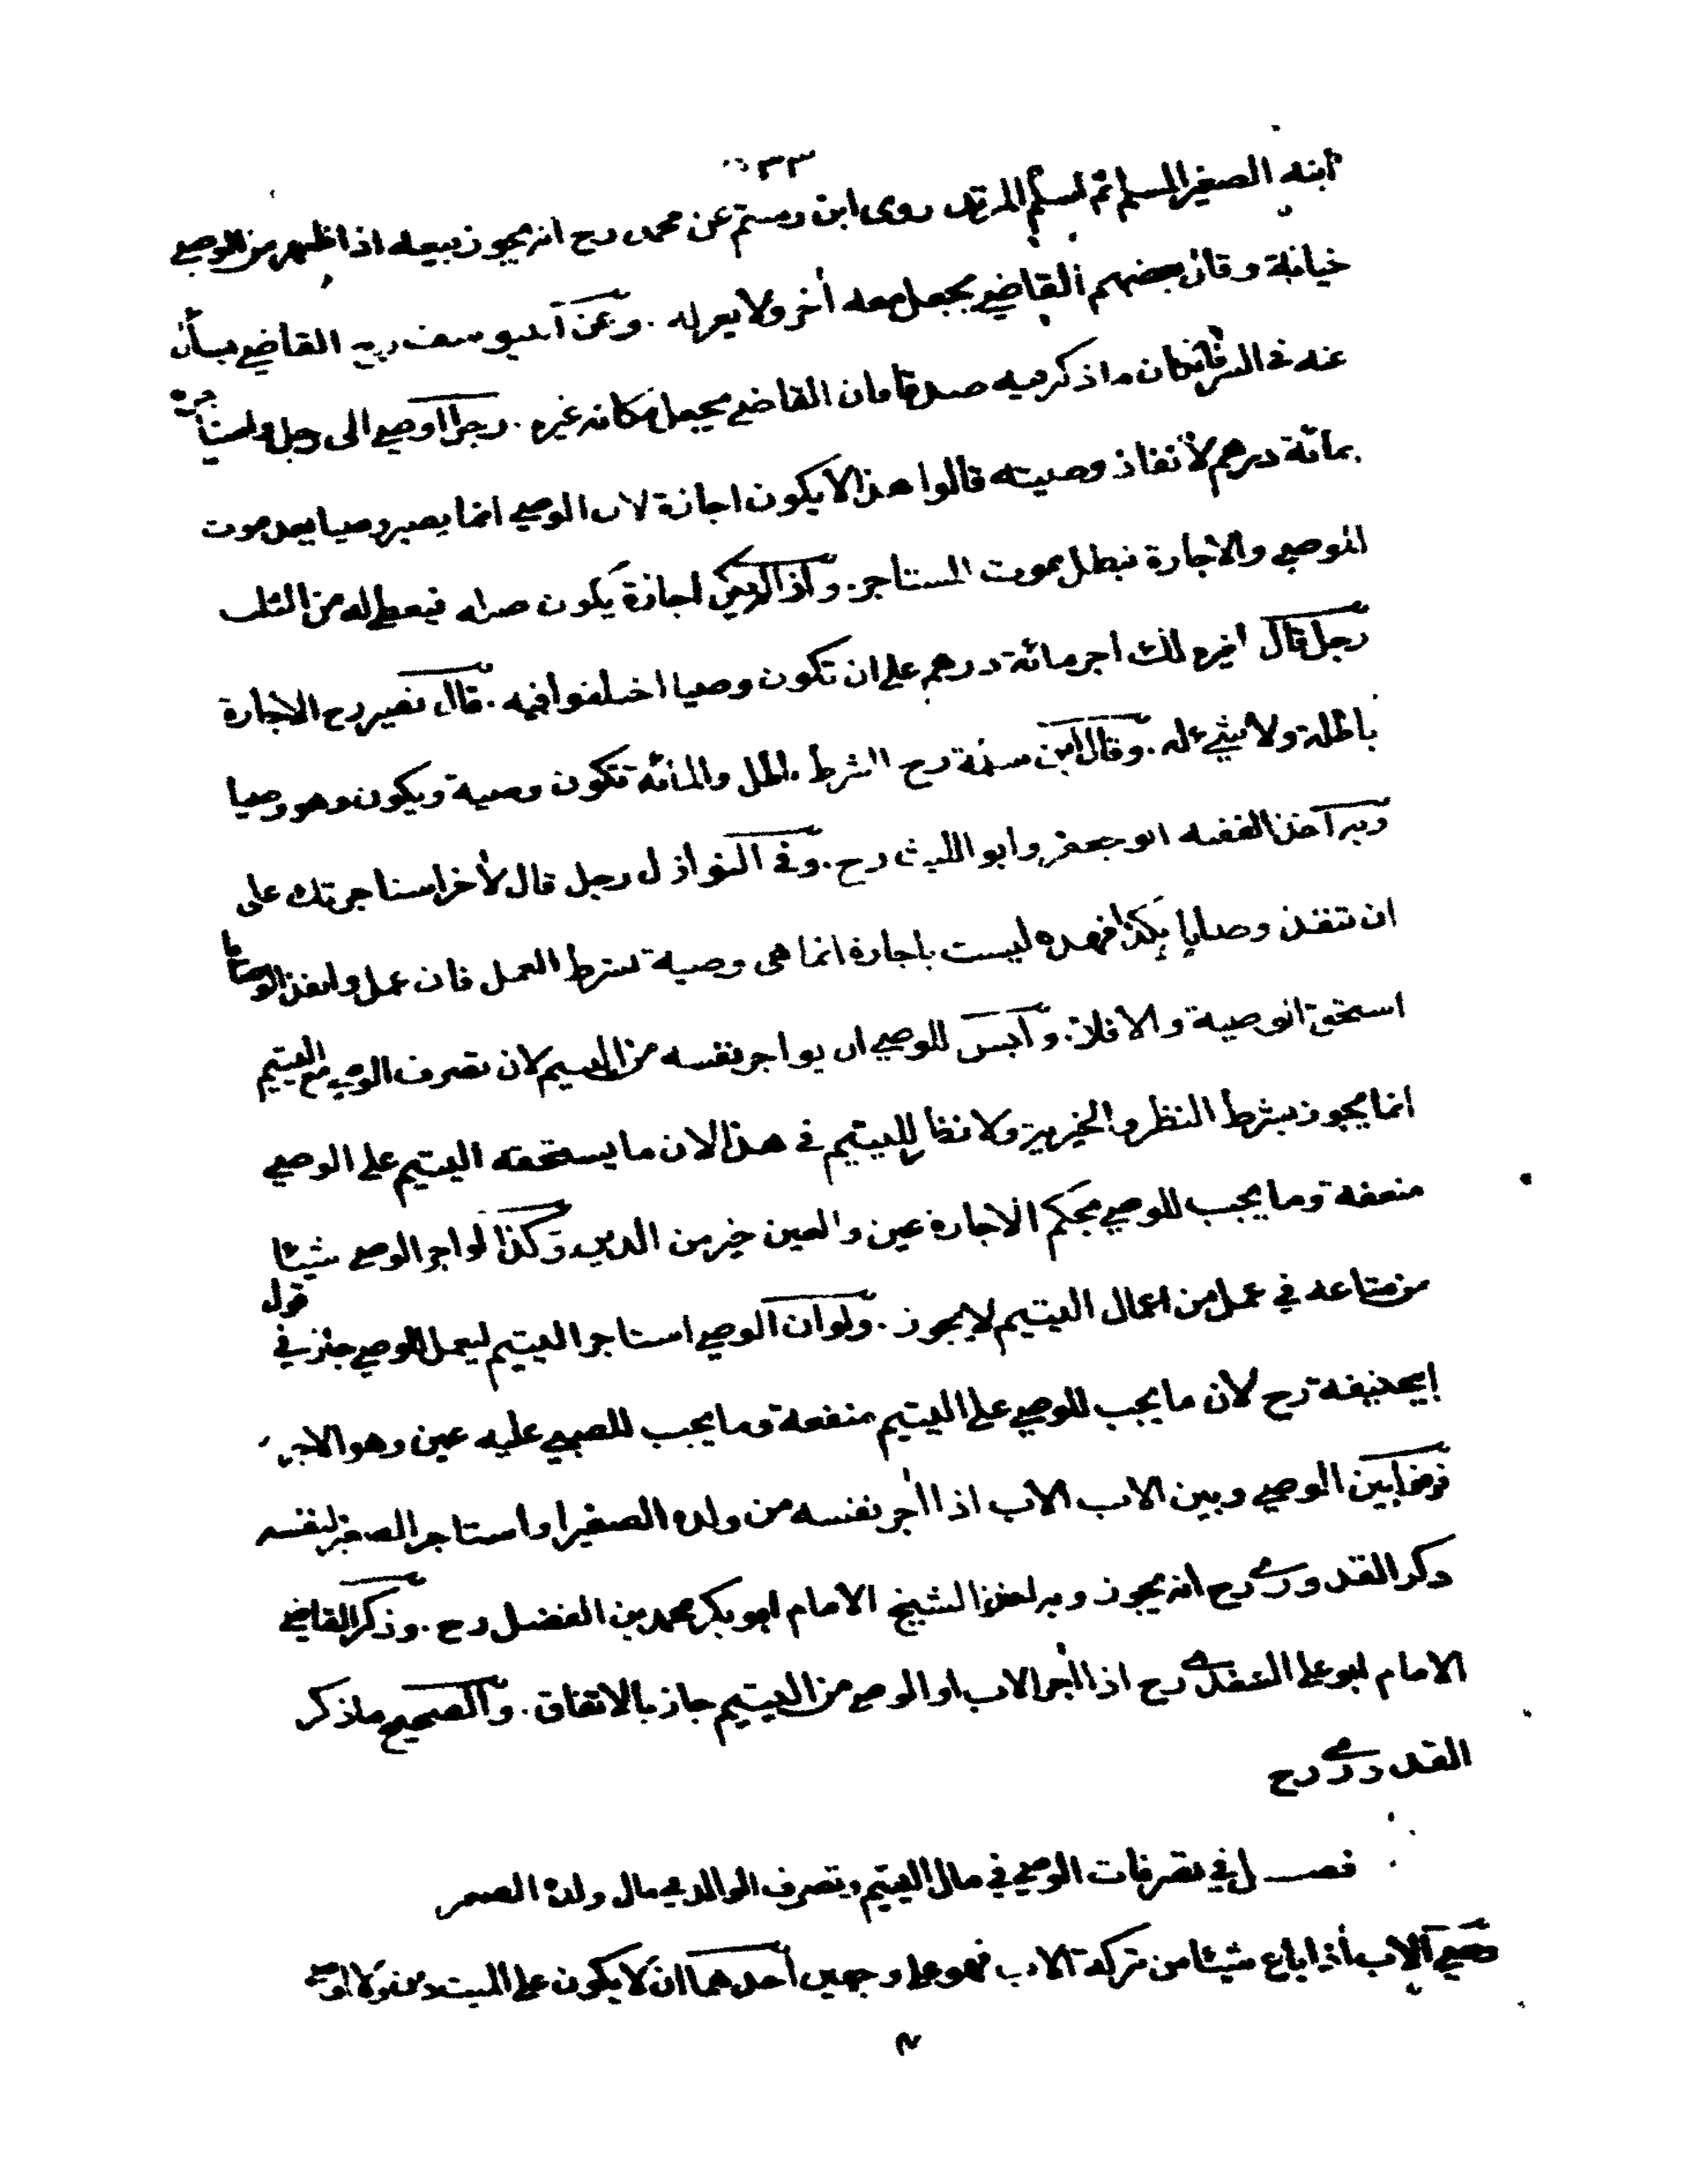 ٣٣
ابنه الصغير المسلم ثم اسلم المرتد روى ابن رستم عن محمد رح انه يجوز بيعه اذا ظهر من الوصي
خيانة وقال بعضهم القاضي يجعل معه أخر ولا يعزله . وعن ابيوسف رح القاضي يسأل
عنه في السر فان كان ما ذكر فيه صدقا فان القاضي يجعل مكانه غيره . رجل اوصى الى رجل واستأجره
بمائة درهم لأنفاذ وصيته قالوا هذا لا يكون اجازة لان الوصي انما يصير وصيا بعد موت
الموصي والاجارة تبطل بموت المستاجر . واذا لم يكن اجازة يكون صلة فيعطى له من الثلث
رجل قال لغيره لك اجر مائة درهم على ان تكون وصيا اختلفوا فيه . قال نصير رح الاجارة
باطلة ولا شيء له . وقال ابن سلمة رح الشرط باطل والمائة تكون وصية ويكون هو وصيا
وبه اخذ الفقيه ابو جعفر وابو الليث رح . وفي النوازل رجل قال لأخر استاجرتك على
ان تنفذ وصايا بكذا فهذه ليست باجارة انما هي وصية بشرط العمل فان عمل وانفذ الوصايا
استحق الوصية والا فلا . وليس للوصي ان يواجر نفسه من اليتيم لان تصرف الوصي مع اليتيم
انما يجوز بشرط النظر والخيرية ولا نظر لليتيم في هذا لان ما يستحقه اليتيم على الوصي
منفعة وما يجب للوصي بحكم الاجارة عين والعين خير من الدين وكذا لو اجر الوصي شيئا
من متاعه في عمل من اعمال اليتيم لا يجوز . ولو ان الوصي استاجر اليتيم ليعمل للوصي جاز في قول
ابيحنيفة رح لان ما يجب للوصي على اليتيم منفعة وما يجب للصبي عليه عين وهو الاجر
فرقوا بين الوصي وبين الاب الاب اذا أجر نفسه من ولده الصغير او استاجر الصغير لنفسه
ذكر القدوري رح انه يجوز وبه اخذ الشيخ الامام ابو بكر محمد بن الفضل رح . وذكر القاضي
الامام ابو على السغدي رح اذا أجر الاب او الوصي من اليتيم جاز بالاتفاق . والصحيح ما ذكر
القدوري رح
فصل في تصرفات الوصي في مال اليتيم وتصرف الوالد في مال ولده الصغير
وصي الاب اذا باع شيئا من تركة الاب فهو على وجهين احدهما ان لا يكون على الميت دين ولا اوصى